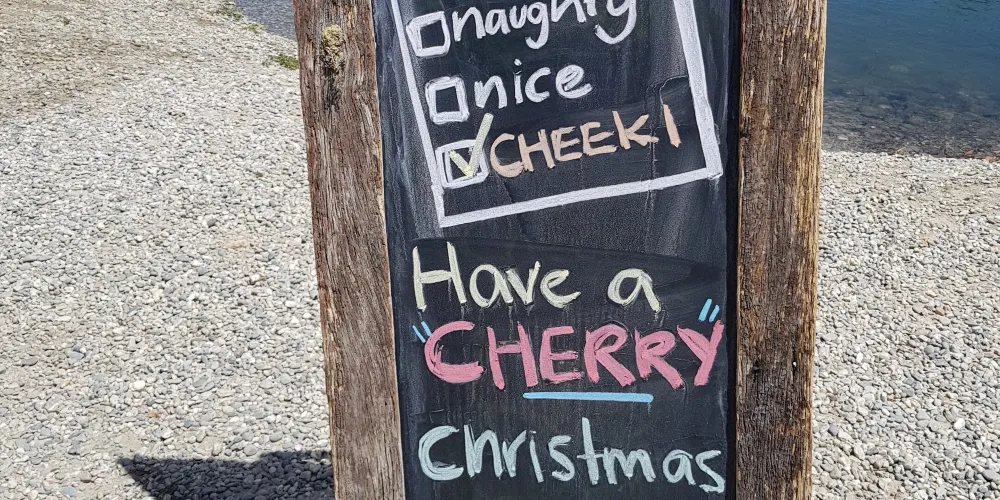 naughty
nice
CHEEKI
Have a
"CHERRY"
Christmas